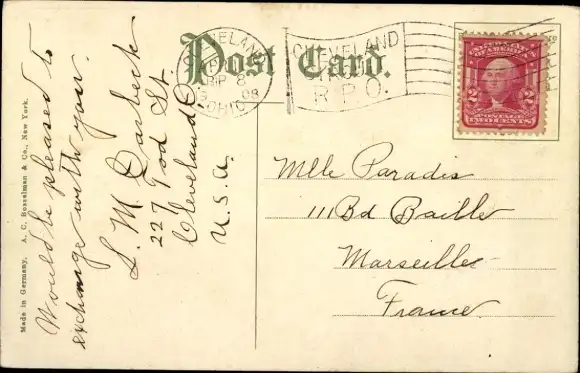 Post Card.
CLEVELAND
OHIO
CLEVELAND
R.P.O.
UNITED STATES OF AMERICA
2 2
POSTAGE
TWO CENTS
Made in Germany. A. C. Bosselman & Co., New York.
Would be pleased to
exchange with you.
L. M. Darbeck
227 Tod St.
Cleveland O
U.S.A.
Mlle Paradis
111 Bd Baille
Marseille
France